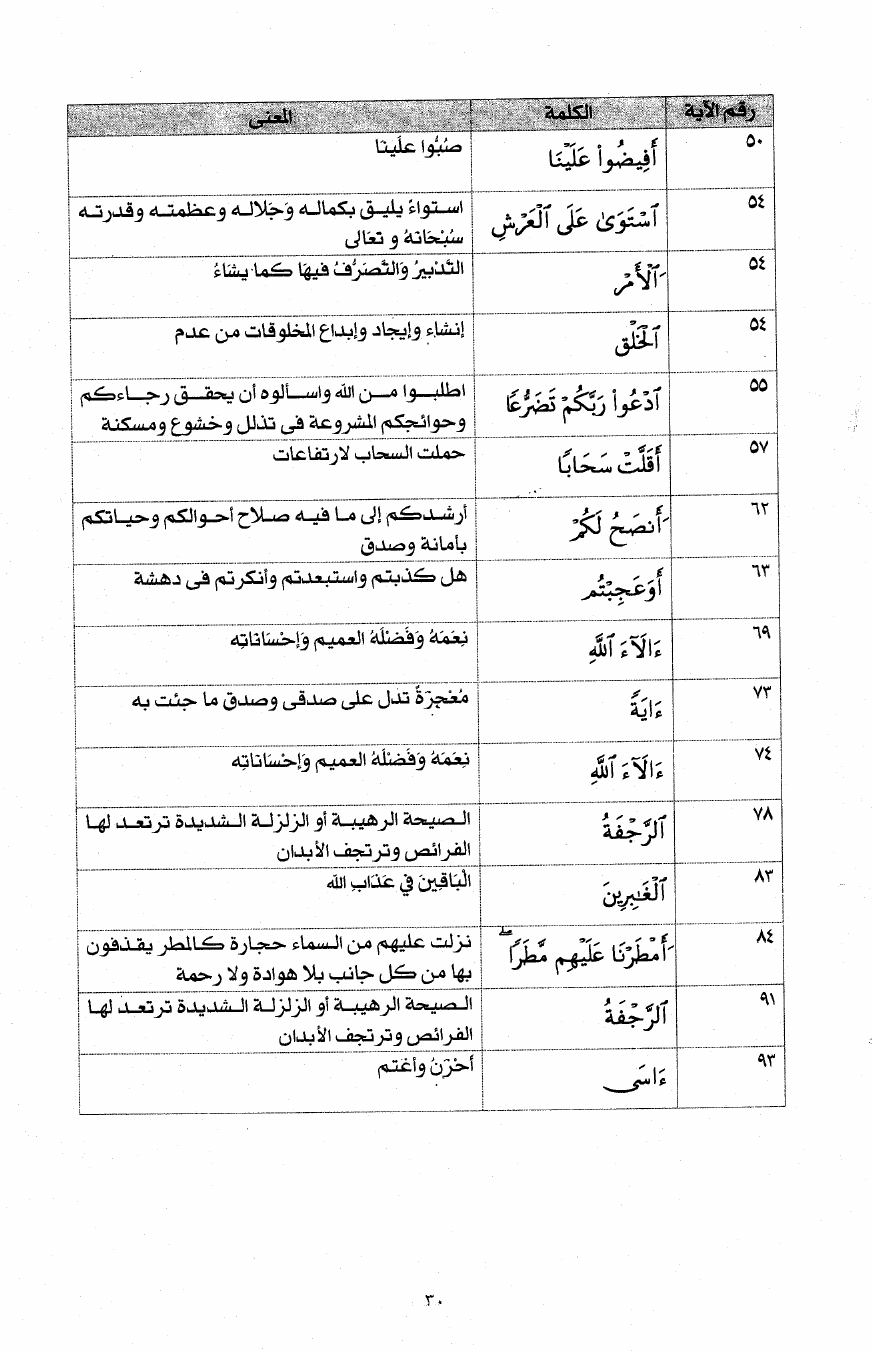 رقم الآية الكلمة المعنى
٥٠ أَفِيضُواْ عَلَيْنَا صُبُّوا علَينا
٥٤ ٱسْتَوَىٰ عَلَى ٱلْعَرْشِ استواءً يليق بكماله وَجَلاله وعظمته وقدرته
سُبْحَانهُ و تعَالى
٥٤ ٱلْأَمْر التَّدْبيرُ وَالتَّصَرُّفُ فيهَا كما يشَاءُ
٥٤ ٱلْخَلْق إنشاء وإيجاد وإبداع المخلوقات من عدم
٥٥ ٱدْعُواْ رَبَّكُمْ تَضَرُّعًا اطلبوا من الله واسألوه أن يحقق رجاءكم
وحوائجكم المشروعة فى تذلل وخشوع ومسكنة
٥٧ أَقَلَّتْ سَحَابًا حملت السحاب لارتفاعات
٦٢ أَنصَحُ لَكُمْ أرشدكم إلى ما فيه صلاح أحوالكم وحياتكم
بأمانة وصدق
٦٣ أَوَعَجِبْتُمْ هل كذبتم واستبعدتم وأنكرتم فى دهشة
٦٩ ءَالَآءَ ٱللَّهِ نِعَمَهُ وَفَضْلَهُ العميم وَإحْسَاناتِه
٧٣ ءَايَةً مُعْجِزَةً تدل على صدقى وصدق ما جئت به
٧٤ ءَالَآءَ ٱللَّهِ نِعَمَهُ وَفَضْلَهُ العميم وَإحْسَاناتِه
٧٨ ٱلرَّجْفَةُ الصيحة الرهيبة أو الزلزلة الشديدة ترتعد لها
الفرائص وترتجف الأبدان
٨٣ ٱلْغَٰبِرِينَ الْبَاقِينَ فِي عَذَابِ الله
٨٤ أَمْطَرْنَا عَلَيْهِم مَّطَرًا ۖ نزلت عليهم من السماء حجارة كالمطر يقذفون
بها من كل جانب بلا هوادة ولا رحمة
٩١ ٱلرَّجْفَةُ الصيحة الرهيبة أو الزلزلة الشديدة ترتعد لها
الفرائص وترتجف الأبدان
٩٣ ءَاسَى أحْزَنُ وأغتم
٣٠